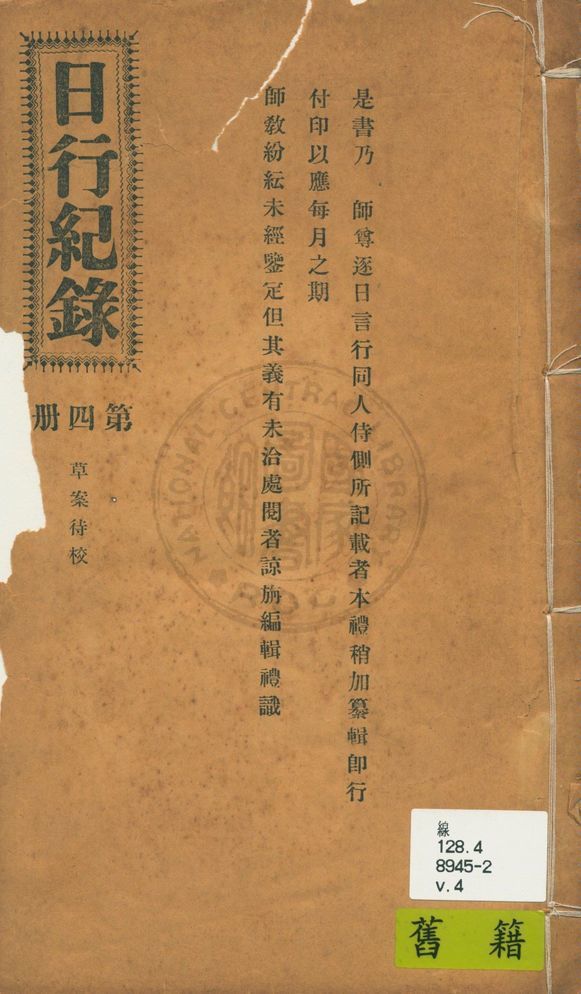 日行紀錄
第四册
草案待校
是書乃　師尊逐日言行同人侍側所記載者本禮稍加纂輯卽行
付印以應每月之期
師敎紛紜未經鑒定但其義有未洽處閱者諒旃編輯禮識
NATIONAL CENTRAL LIBRARY
ROC
國家圖書館
線
128.4
8945-2
v.4
舊籍